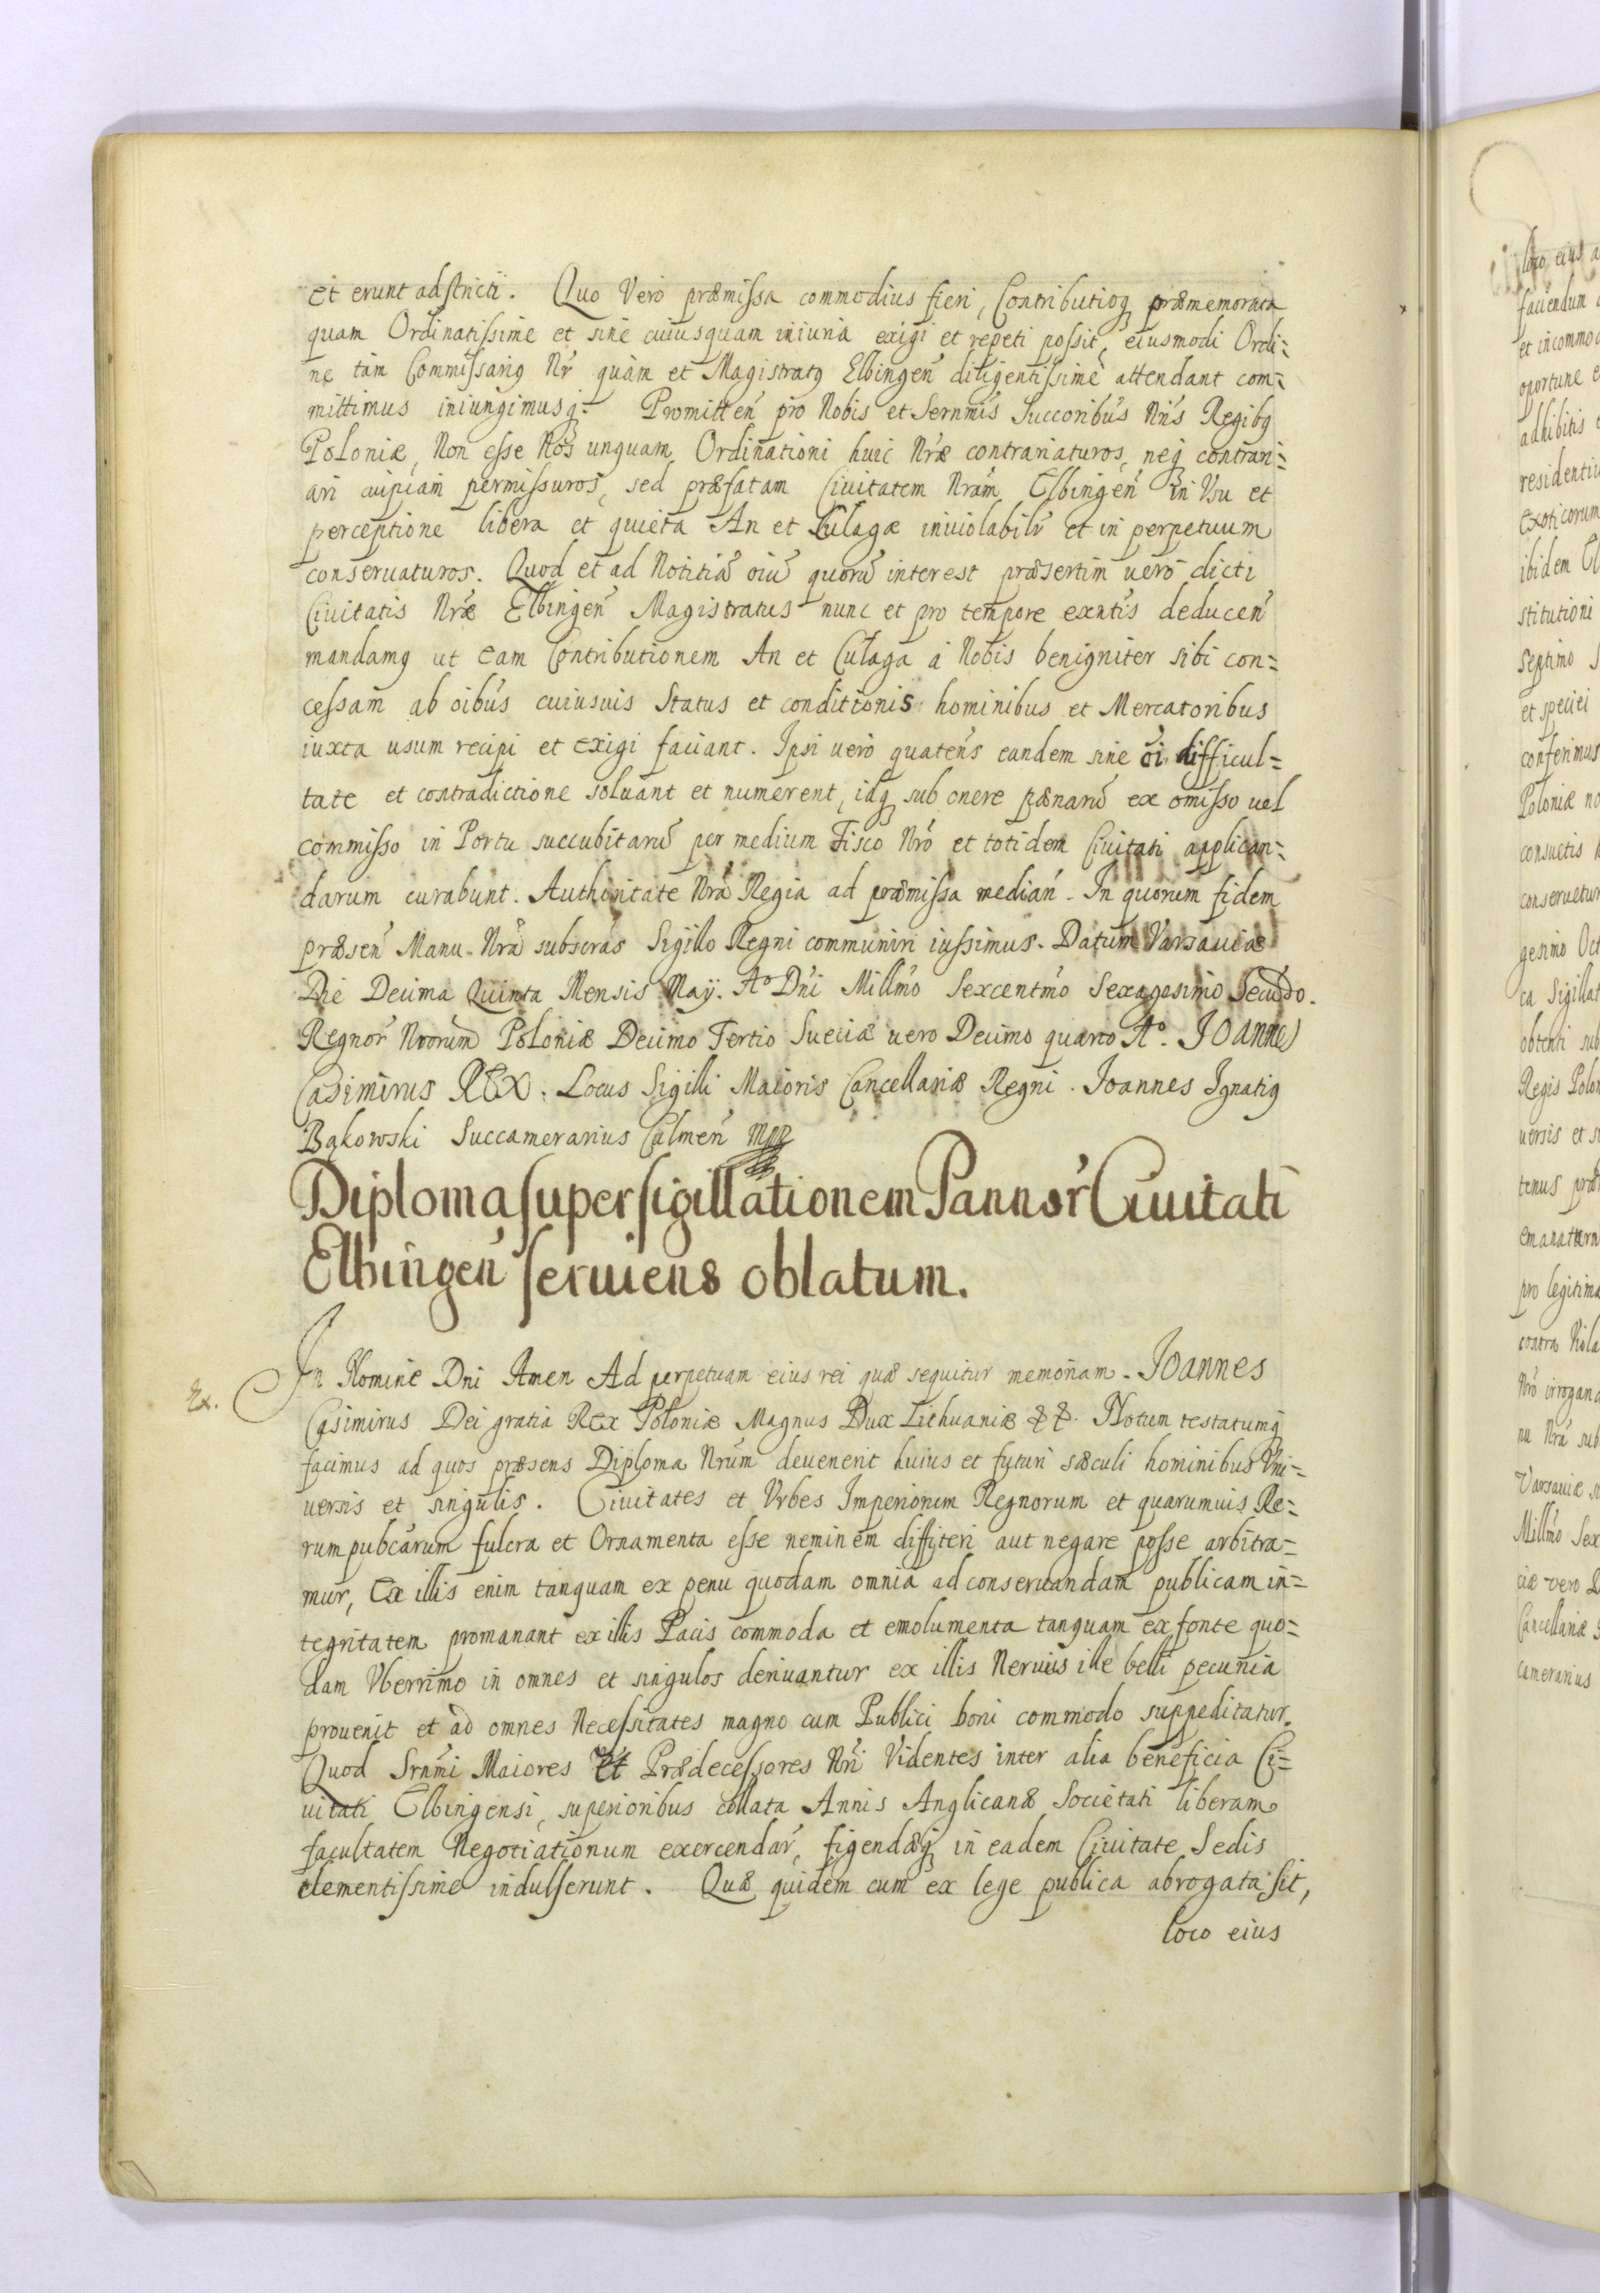 et erunt adstricti. Quo Vero præmissa commodius fieri, Contributioq præmemorata
quam Ordinatissime et sine cuiusquam iniuria exigi et repeti possit, eiusmodi Ordi=
ne tàm Commissariq Nr̃ quàm et Magistratq Elbingeñ diligentissimè attendant com=
mittimus iniungimusq. Promitteñ pro Nobis et Sernm̃is Succoribũs Nr̃is Regibq
Poloniæ, Non esse Nos unquam Ordinationi huic Nr̃æ contrariaturos, neq contrari=
ari cuipiam permissuros, sed præfatam Ciuitatem Nrãm Elbingeñ in Vsu et
perceptione libera et quieta An et Culagæ inuiolabilr̃ et in perpetuum
conseruaturos. Quod et ad Notitiã oiũ quorũ interest præsertim uero dicti
Ciuitatis Nr̃æ Elbingeñ Magistratus nunc et pro tempore exñtis deduceñ
mandamq ut eam Contributionem An et Culaga à Nobis benigniter sibi con=
cessam ab oibũs cuiusuis Status et conditionis hominibus et Mercatoribus
iuxta usum recipi et exigi faciant. Ipsi uerò quateñs eandem sine õi difficul=
tate et contradictione soluant et numerent, idq sub onere pœnarũ ex omisso uel
commisso in Portu succubitarũ per medium Fisco Nrõ et totidem Ciuitati applican=
darum curabunt. Authoritate Nrã Regia ad præmissa mediañ. In quorum fidem
præseñ Manu Nrã subscrãs Sigillo Regni communiri iussimus. Datum Varsauiæ
Die Decima Quinta Mensis Maÿ. Aº Dñi Millm̃o Sexcentm̃o Sexagesimo Secũdo.
Regnor̃ Nrorum Poloniæ Decimo Tertio Sueciæ uero Decimo quarto Aº. JOANNES
Casimirus REX. Locus Sigilli Maioris Cancellariæ Regni. Joannes Ignatiq
Bąkowski Succamerarius Culmeñ mpp
Diploma super sigillationem Pannor̃ Ciuitati
Elbingeñ seruiens oblatum.
Ex.
In Nomine Dni Amen Ad perpetuam eius rei quæ sequitur memoriam. JOANNES
Casimirus Dei gratia REX Poloniæ Magnus Dux Lithuaniæ && Notum testatumq
facimus ad quos præsens Diploma Nrũm deuenerit huius et futuri sæculi hominibus Vni=
uersis et singulis. Ciuitates et Vrbes Imperiorum Regnorum et quarumuis Re=
rumpubcãrum fulcra et Ornamenta esse neminem diffiteri aut negare posse arbitra=
mur, Ex illis enim tanquam ex penu quodam omnia ad conseruandam publicam in=
tegritatem promanant ex illis Pacis commoda et emolumenta tanquam ex fonte quo=
dam Vberrimo in omnes et singulos deriuantur ex illis Neruus ille belli pecunia
prouenit et ad omnes Necessitates magno cum Publici boni commodo suppeditatur.
Quod Srnm̃i Maiores et Prædecessores Nr̃i Videntes inter alia beneficia Ci=
uitati Elbingensi, superioribus collata Annis Anglicanæ Societati liberam
facultatem Negotiationum exercendar̃, figendæq in eadem Ciuitate Sedis
clementissime indulserunt. Quæ quidem cum ex lege publica abrogata sit,
loco eius